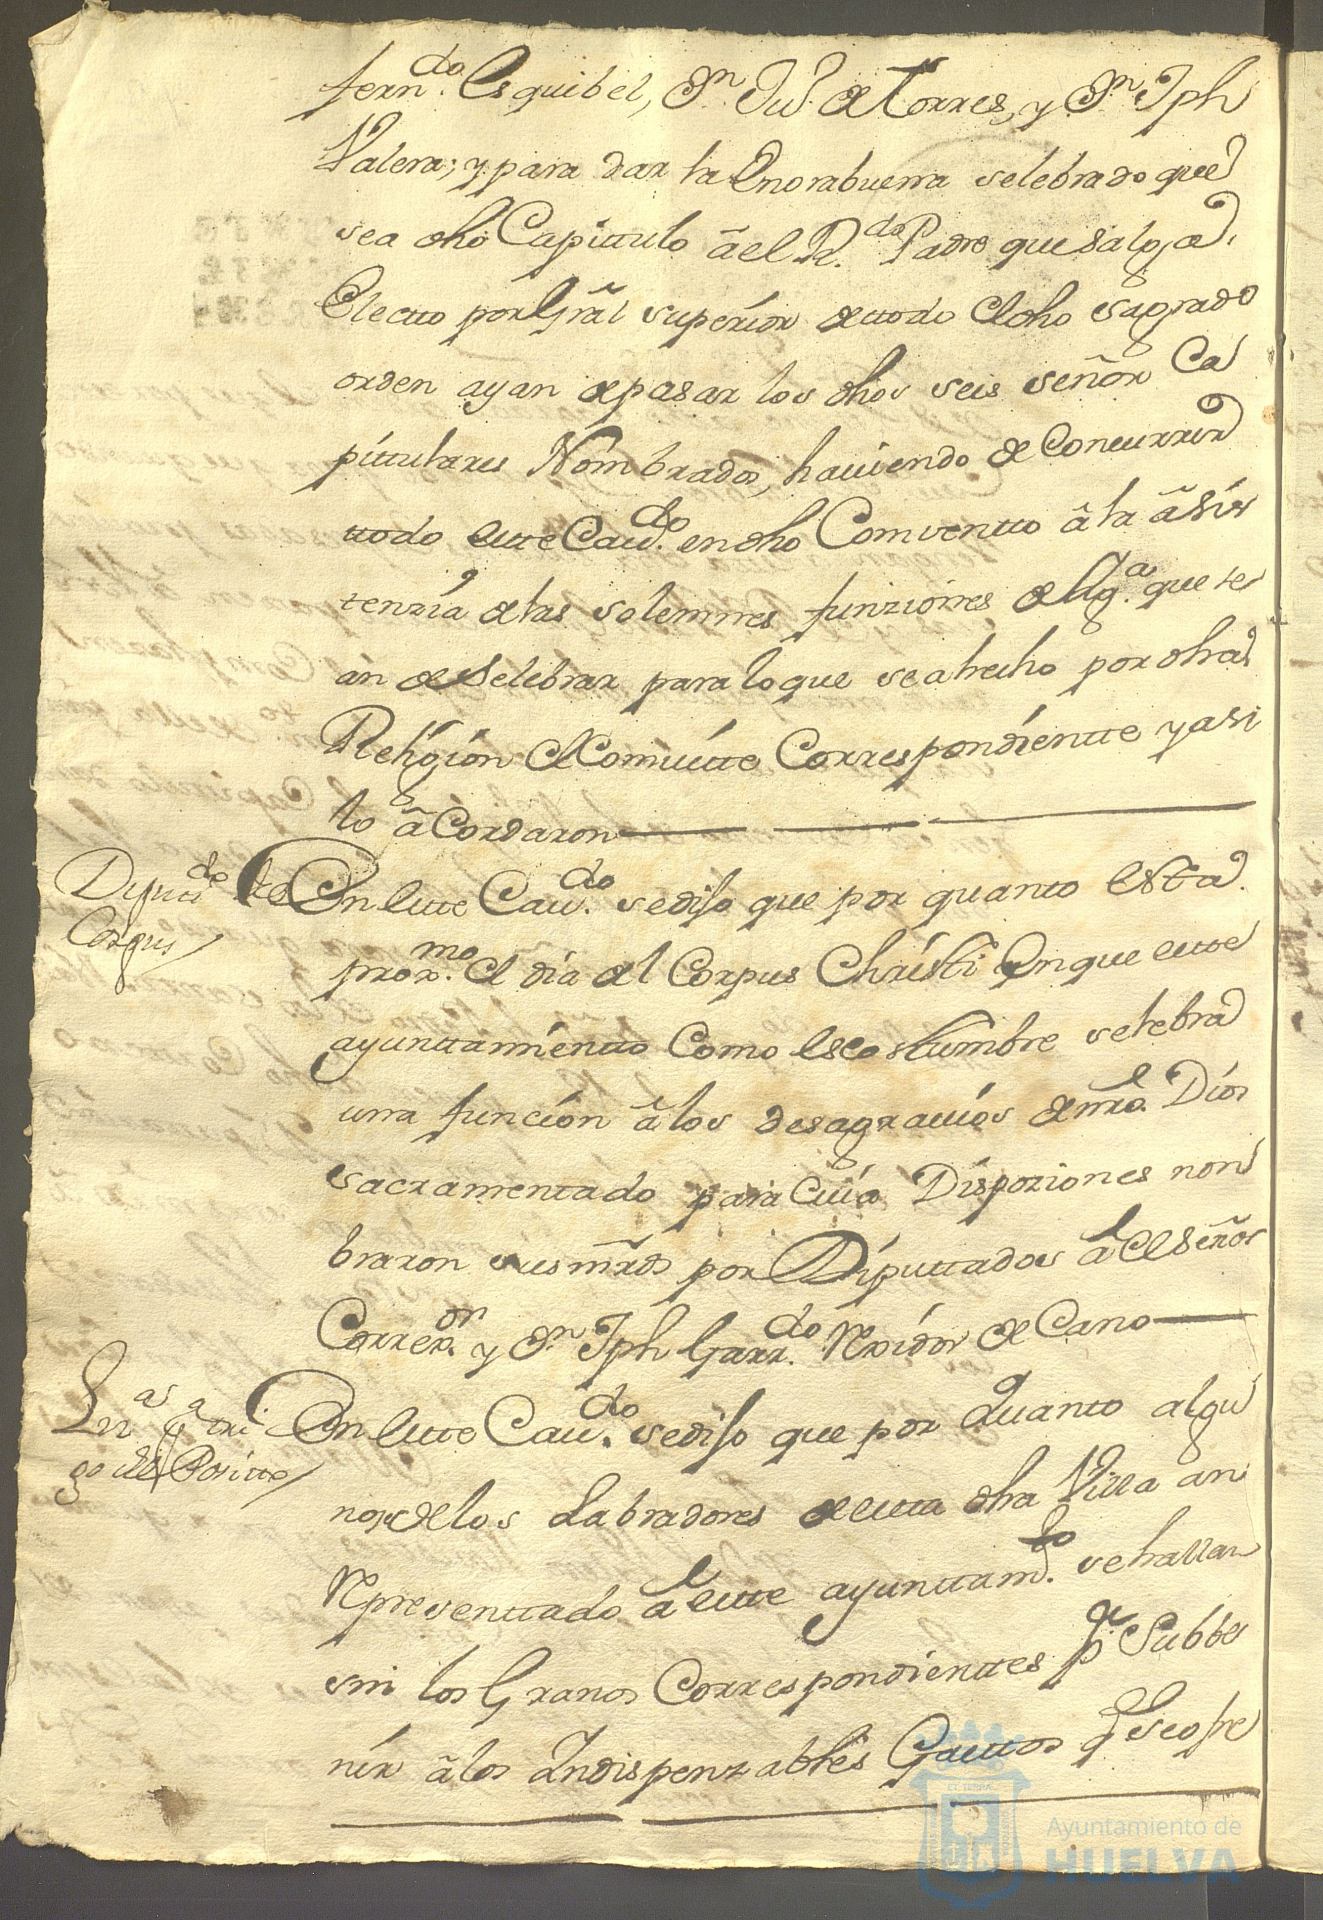 fern.do Esquibel, Dn. Jun. de Torres, y Dn. Jph
Valera; y para dar la Enorabuena selebrado que
sea dho Capittulo â el R.do Padre que salga
Electto por Grãl superior de ttodo el dho sagrado
orden ayan de pasar los dhos seis señor Ca
pittulares Nombrados, haviendo de Concurrir
ttodo este Cav.do en dho Comventto â la âsis
tenzia de las solemnes funziones de Ygª. que se
an de Selebrar para lo que se a hecho por dha
Religion el Comvitte Correspondientte y asi
lo âCordaron
Diputt.do de
Corpus
En este Cav.do se dijo que por quanto esta
prox.mo el dia del Corpus Christi En que este
ayunttamientto Como es Costumbre selebra
una funcion â los desagravios de nro. Dios
sacramentado para Cuia Dispoziones non
braron sus mrds por Diputtados â el Señor
Correx.or y Dn. Jph Garr.do Rexidor de Cano
En este Cav.do se dijo que por Quanto algu
nos de los Labradores de esta dha Villa an
Representtado â este ayunttam.to se hallan
sin los Granos Correspondienttes pª Subbe
nir â los Indispenzables Gasttos q se ofre
go del Positto
Ayuntamiento de
HUELVA